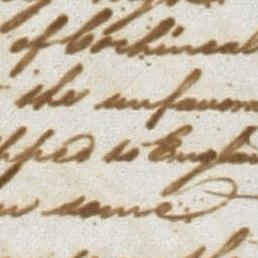 of Cochineal
the unfavora
pped to Englan
some